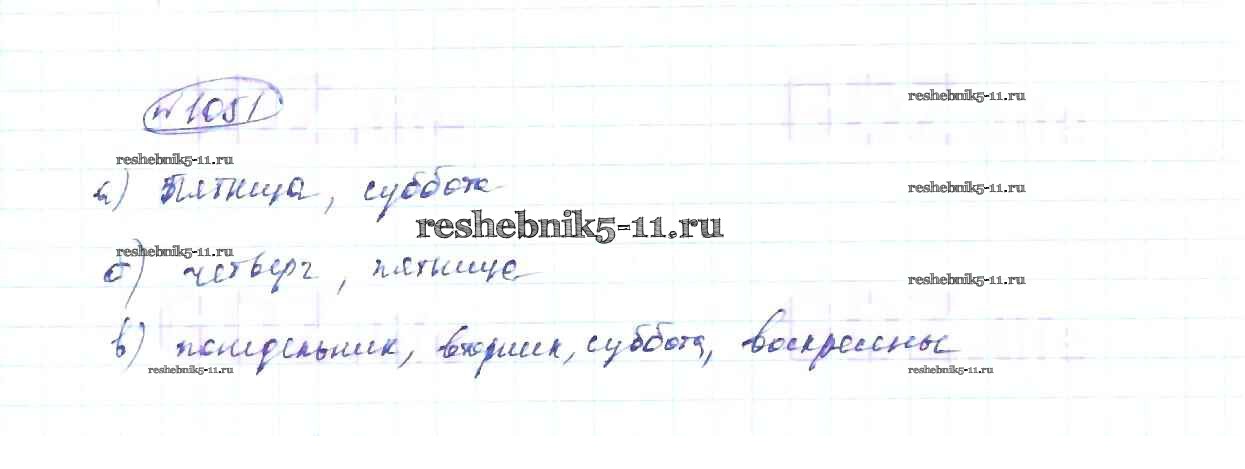 №1051
reshebnik5-11.ru
reshebnik5-11.ru
а) пятница, суббота
reshebnik5-11.ru
reshebnik5-11.ru
reshebnik5-11.ru
б) четверг, пятница
reshebnik5-11.ru
в) понедельник, вторник, суббота, воскресенье
reshebnik5-11.ru
reshebnik5-11.ru